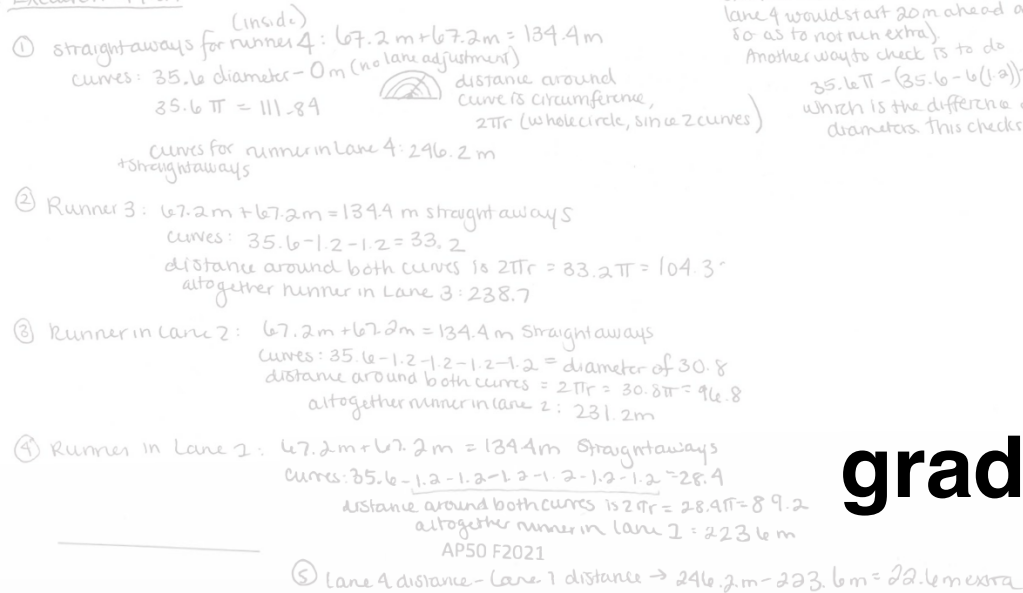 (inside)
① straightaways for runner 4: 67.2m+67.2m= 134.4m
curves: 35.6 diameter - 0m (no lane adjustment)
35.6π = 111.84
distance around
curve is circumference,
2πr (whole circle, since 2 curves)
curves for runner in Lane 4: 246.2m
+straightaways
lane 4 would start 20m ahead
so as to not run extra)
Another way to check is to do
35.6π-(35.6-6(1.2))
which is the difference
diameters. This checks
② Runner 3: 67.2m+67.2m=134.4 m straight aways
curves: 35.6-1.2-1.2=33.2
distance around both curves is 2πr = 33.2π= 104.3
altogether runner in Lane 3: 238.7
③ Runner in Lane 2: 67.2m+67.2m=134.4m straight aways
curves: 35.6-1.2-1.2-1.2-1.2= diameter of 30.8
distance around both curves = 2πr = 30.8π= 96.8
altogether runner in lane 2: 231.2m
④ Runner in Lane 1: 67.2m+67.2m = 134.4m straightaways
curves: 35.6-1.2-1.2-1.2-1.2-1.2-1.2=28.4
distance around both curves is 2πr= 28.4π=89.2
altogether runner in lane 1: 223.6m
grad
AP50 F2021
⑤ Lane 4 distance - Lane 1 distance → 246.2m-223.6m= 22.6m extra